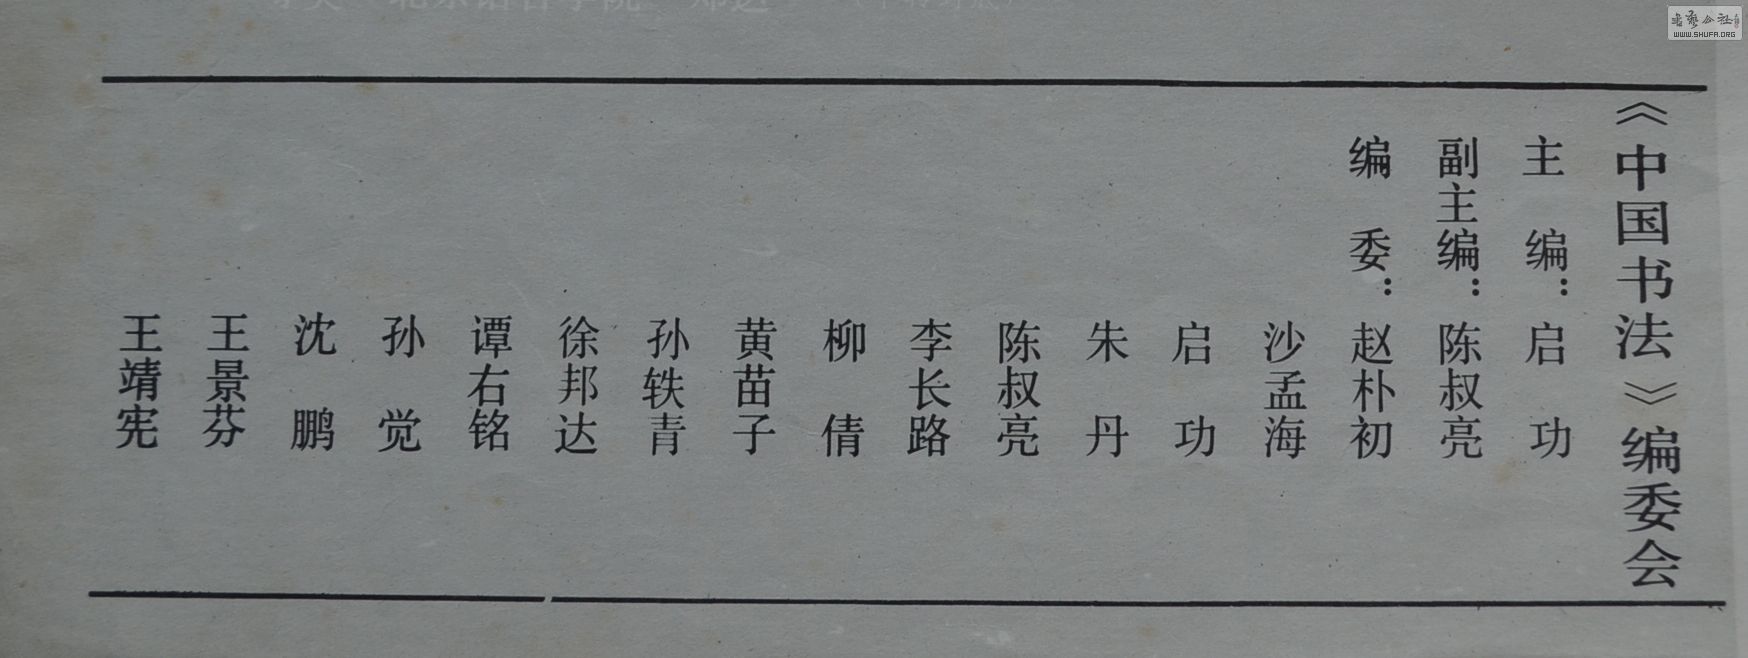 《中国书法》编委会
主 编：启 功
副主编：陈叔亮
编 委：赵朴初
沙孟海
启 功
朱 丹
陈叔亮
李长路
柳 倩
黄苗子
孙轶青
徐邦达
谭右铭
孙 觉
沈 鹏
王景芬
王靖宪
WWW.SHUFA.ORG